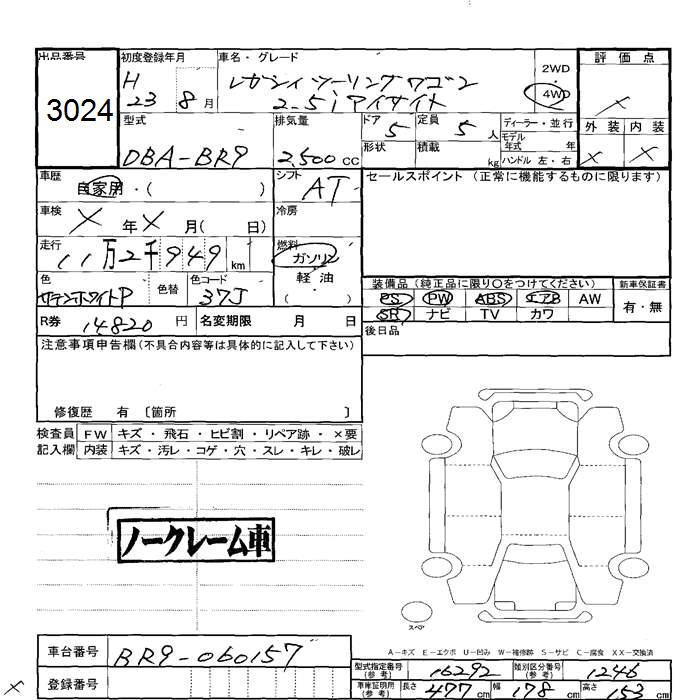 出品番号 初度登録年月 車名・グレード 2WD 評価点
3024 H 23 8月 レガシィツーリングワゴン 4WD ×
2.5iアイサイト
型式 排気量 ドア 5 定員 5人 ディーラー・並行 外装 内装
DBA-BR9 2,500cc 形状 積載 kg モデル年式 年 × ×
ハンドル 左・右
車歴 自家用・( ) シフト AT セールスポイント(正常に機能するものに限ります)
車検 × 年 × 月( 日) 冷房
走行 11万2千949km 燃料 ガソリン
軽・油
( )
色 サテンホワイトP 色替 色コード 37J
装備品(純正品に限り○をつけてください) 新車保証書
PS PW ABS エアB AW 有・無
SR ナビ TV カワ
R券 14820円 名変期限 月 日 後日品
注意事項申告欄(不具合内容等は具体的に記入して下さい)
修復歴 有 〔箇所 〕
検査員 FW キズ・飛石・ヒビ割・リペア跡・×要
記入欄 内装 キズ・汚レ・コゲ・穴・スレ・キレ・破レ
ノークレーム車
スペア
A-キズ E-エクボ U-凹み W-補修跡 S-サビ C-腐食 XX-交換済
車台番号 BR9-060157
型式指定番号(参考) 16292 類別区分番号(参考) 1246
登録番号
車庫証明用(参考) 長さ 477cm 幅 178cm 高さ 153cm
×